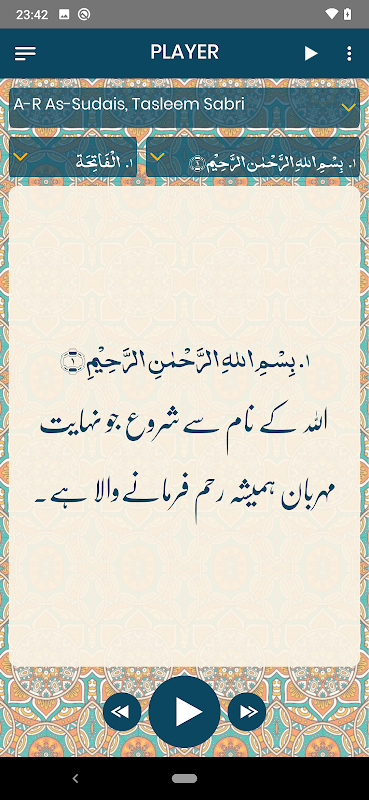 23:42
PLAYER
A-R As-Sudais, Tasleem Sabri
١. الْفَاتِحَة
١. بِسْمِ اللهِ الرَّحْمٰنِ الرَّحِيْمِ ﴿١﴾
١. بِسْمِ اللهِ الرَّحْمٰنِ الرَّحِيْمِ ﴿١﴾
اللہ کے نام سے شروع جو نہایت
مہربان ہمیشہ رحم فرمانے والا ہے۔